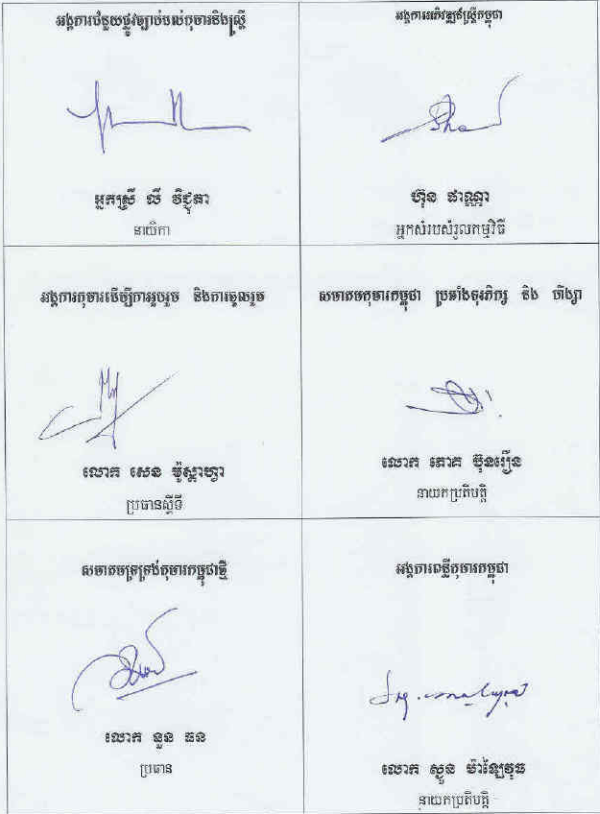 អង្គការជំនួយផ្លូវច្បាប់ដល់កុមារនិងស្ត្រី
អ្នកស្រី លី វិជ្ជុតា
នាយិកា
អង្គការអភិវឌ្ឍន៍ស្ត្រីកម្ពុជា
ហ៊ុន ផាណ្ណា
អ្នកសំរបសំរួលកម្មវិធី
អង្គការកុមារដើម្បីការរួបរួម និងការចូលរួម
លោក សេន ម៉ូស្តាហ្វា
ប្រធានស្តីទី
សមាគមកុមារកម្ពុជា ប្រឆាំងទុរភិក្ស និង ហិង្សា
លោក ភោគ ប៊ុនរឿន
នាយកប្រតិបត្តិ
សមាគមទ្រទ្រង់កុមារកម្ពុជាថ្មី
លោក នួន ធន
ប្រធាន
អង្គការពន្លឺកុមារកម្ពុជា
លោក សួន ម៉ាឡៃវុធ
នាយកប្រតិបត្តិ